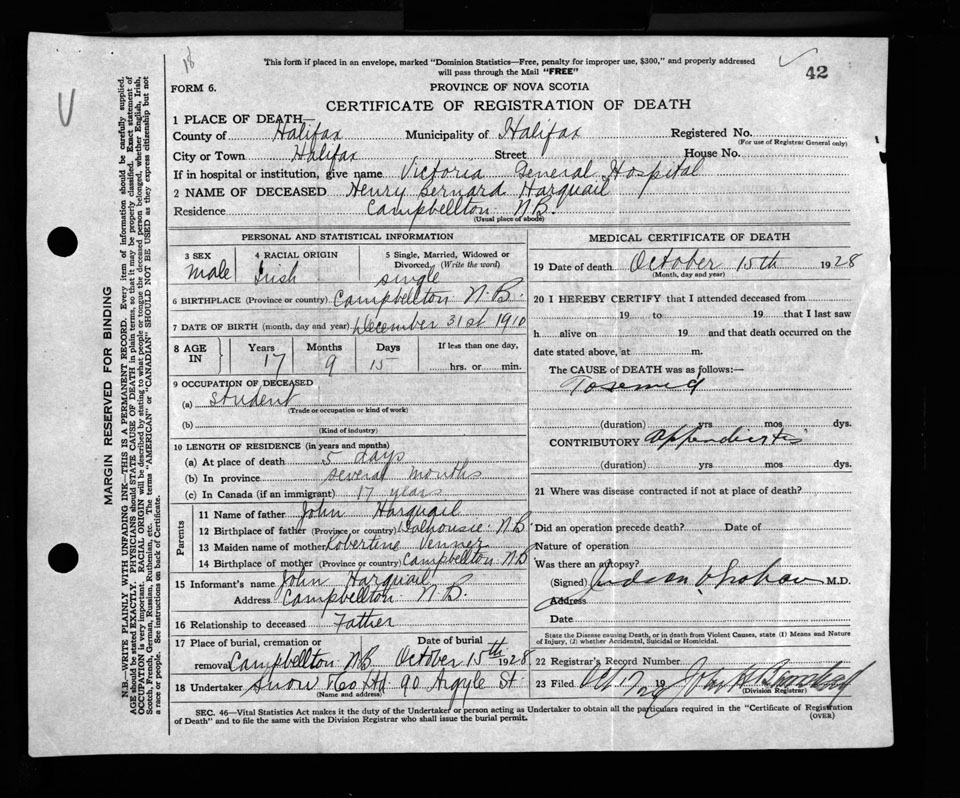 18
This form if placed in an envelope, marked "Dominion Statistics—Free, penalty for improper use, $300," and properly addressed
will pass through the Mail "FREE"
42
FORM 6.
PROVINCE OF NOVA SCOTIA
CERTIFICATE OF REGISTRATION OF DEATH
1 PLACE OF DEATH—
County of Halifax Municipality of Halifax Registered No.
(For use of Registrar General only)
City or Town Halifax Street House No.
If in hospital or institution, give name Victoria General Hospital
2 NAME OF DECEASED Henry Bernard Harquail
Residence Campbellton N.B.
(Usual place of abode)
PERSONAL AND STATISTICAL INFORMATION
3 SEX 4 RACIAL ORIGIN 5 Single, Married, Widowed or
Divorced. (Write the word)
Male Irish single
6 BIRTHPLACE (Province or country) Campbellton N.B.
7 DATE OF BIRTH (month, day and year) December 31st 1910
8 AGE IN Years Months Days If less than one day,
17 9 15 hrs. or min.
9 OCCUPATION OF DECEASED
(a) student
(Trade or occupation or kind of work)
(b)
(Kind of industry)
10 LENGTH OF RESIDENCE (in years and months)
(a) At place of death 5 days
(b) In province several months
(c) In Canada (if an immigrant) 17 years
Parents
11 Name of father John Harquail
12 Birthplace of father (Province or country) Dalhousie N.B.
13 Maiden name of mother Robertine Venner
14 Birthplace of mother (Province or country) Campbellton N.B.
15 Informant's name John Harquail
Address Campbellton N.B.
16 Relationship to deceased Father
17 Place of burial, cremation or Date of burial
removal Campbellton N.B. October 15th 1928
18 Undertaker Snow & Co Ltd 90 Argyle St.
(Name and address)
MEDICAL CERTIFICATE OF DEATH
19 Date of death October 15th 1928
(Month, day and year)
20 I HEREBY CERTIFY that I attended deceased from
19 to 19 that I last saw
h alive on 19 and that death occurred on the
date stated above, at m.
The CAUSE of DEATH was as follows:—
Toxemia
(duration) yrs mos dys.
CONTRIBUTORY Appendicitis
(duration) yrs mos dys.
21 Where was disease contracted if not at place of death?
Did an operation precede death? Date of
Nature of operation
Was there an autopsy?
(Signed) M.D.
Address
Date
State the Disease causing Death, or in death from Violent Causes, state (1) Means and Nature
of Injury, (2) whether Accidental, Suicidal or Homicidal.
22 Registrar's Record Number
23 Filed Oct 17/28 19
(Division Registrar)
SEC. 46—Vital Statistics Act makes it the duty of the Undertaker or person acting as Undertaker to obtain all the particulars required in the "Certificate of Registration
of Death" and to file the same with the Division Registrar who shall issue the burial permit.
(OVER)
MARGIN RESERVED FOR BINDING
N.B.—WRITE PLAINLY WITH UNFADING INK—THIS IS A PERMANENT RECORD. Every item of information should be carefully supplied.
AGE should be stated EXACTLY. PHYSICIANS should STATE CAUSE OF DEATH in plain terms, so that it may be properly classified. Exact statement of
OCCUPATION is very important. RACIAL ORIGIN will be described by stating to what people or tongue the deceased person belonged, whether English, Irish,
Scotch, French, German, Russian, Ruthenian, etc. The terms "AMERICAN" or "CANADIAN" SHOULD NOT BE USED as they express citizenship but not
a race or people. See instructions on back of Certificate.